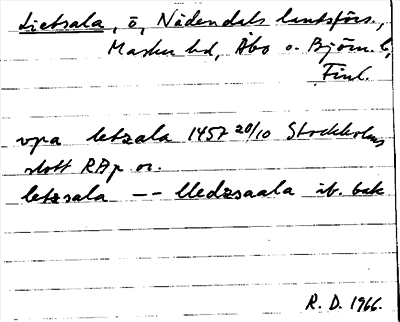 Lietsala, ö, Nådendals landsförs.,
Masku hd, Åbo o. Björn. l,
Finl.
vpa letzala 1457 20/10 Stockholms
slott RAp or.
letzsala -- lledzsaala ib. bak
R. D. 1966.